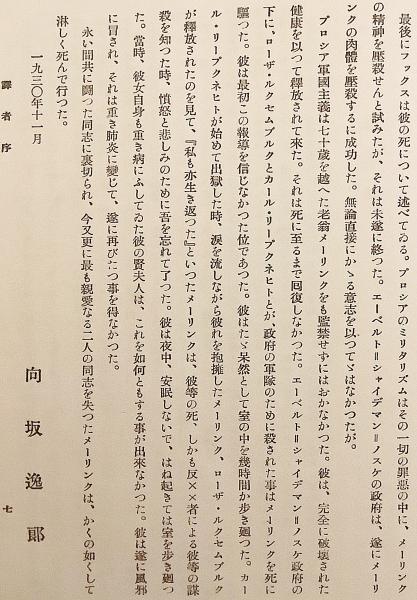 最後にフックスは彼の死について述べてゐる。プロシアのミリタリズムはその一切の罪惡の中に、メーリンク
の精神を壓殺せんと試みたが、それは未遂に終つた。エーベルト＝シャイデマン＝ノスケの政府は、遂にメーリ
ンクの肉體を壓殺するに成功した。無論直接にかゝる意志を以つてゞはなかつたが。
プロシア軍國主義は七十歳を越へた老翁メーリンクをも監禁せずにはおかなかつた。彼は、完全に破壞された
健康を以つて釋放されて來た。それは死に至るまで囘復しなかつた。エーベルト＝シャイデマン＝ノスケ政府の
下に、ローザ・ルクセムブルクとカール・リープクネヒトとが、政府の軍隊のために殺された事はメーリンクを死に
驅つた。彼は最初この報導を信じなかつた位であつた。彼はたゞ呆然として室の中を幾時間か步き廻つた。カー
ル・リープクネヒトが始めて出獄した時、淚を流しながら彼れを抱擁したメーリンク、ローザ・ルクセムブルク
が釋放されたのを見て、『私も亦生き返つた』といつたメーリンクは、彼等の死、しかも反××者による彼等の謀
殺を知つた時、憤怒と悲しみのために吾を忘れて了つた。彼は夜中、安眠しないで、はね起きては室を步き廻つ
た。當時、彼女自身も重き病にふしてゐた彼の賢夫人は、これを如何ともする事が出來なかつた。彼は遂に風邪
に冒され、それは重き肺炎に變じて、遂に再びたつ事を得なかつた。
永い間共に鬪つた同志に裏切られ、今又更に最も親愛なる二人の同志を失つたメーリンクは、かくの如くして
淋しく死んで行つた。
一九三〇年十一月
向坂逸郎
譯者序
七